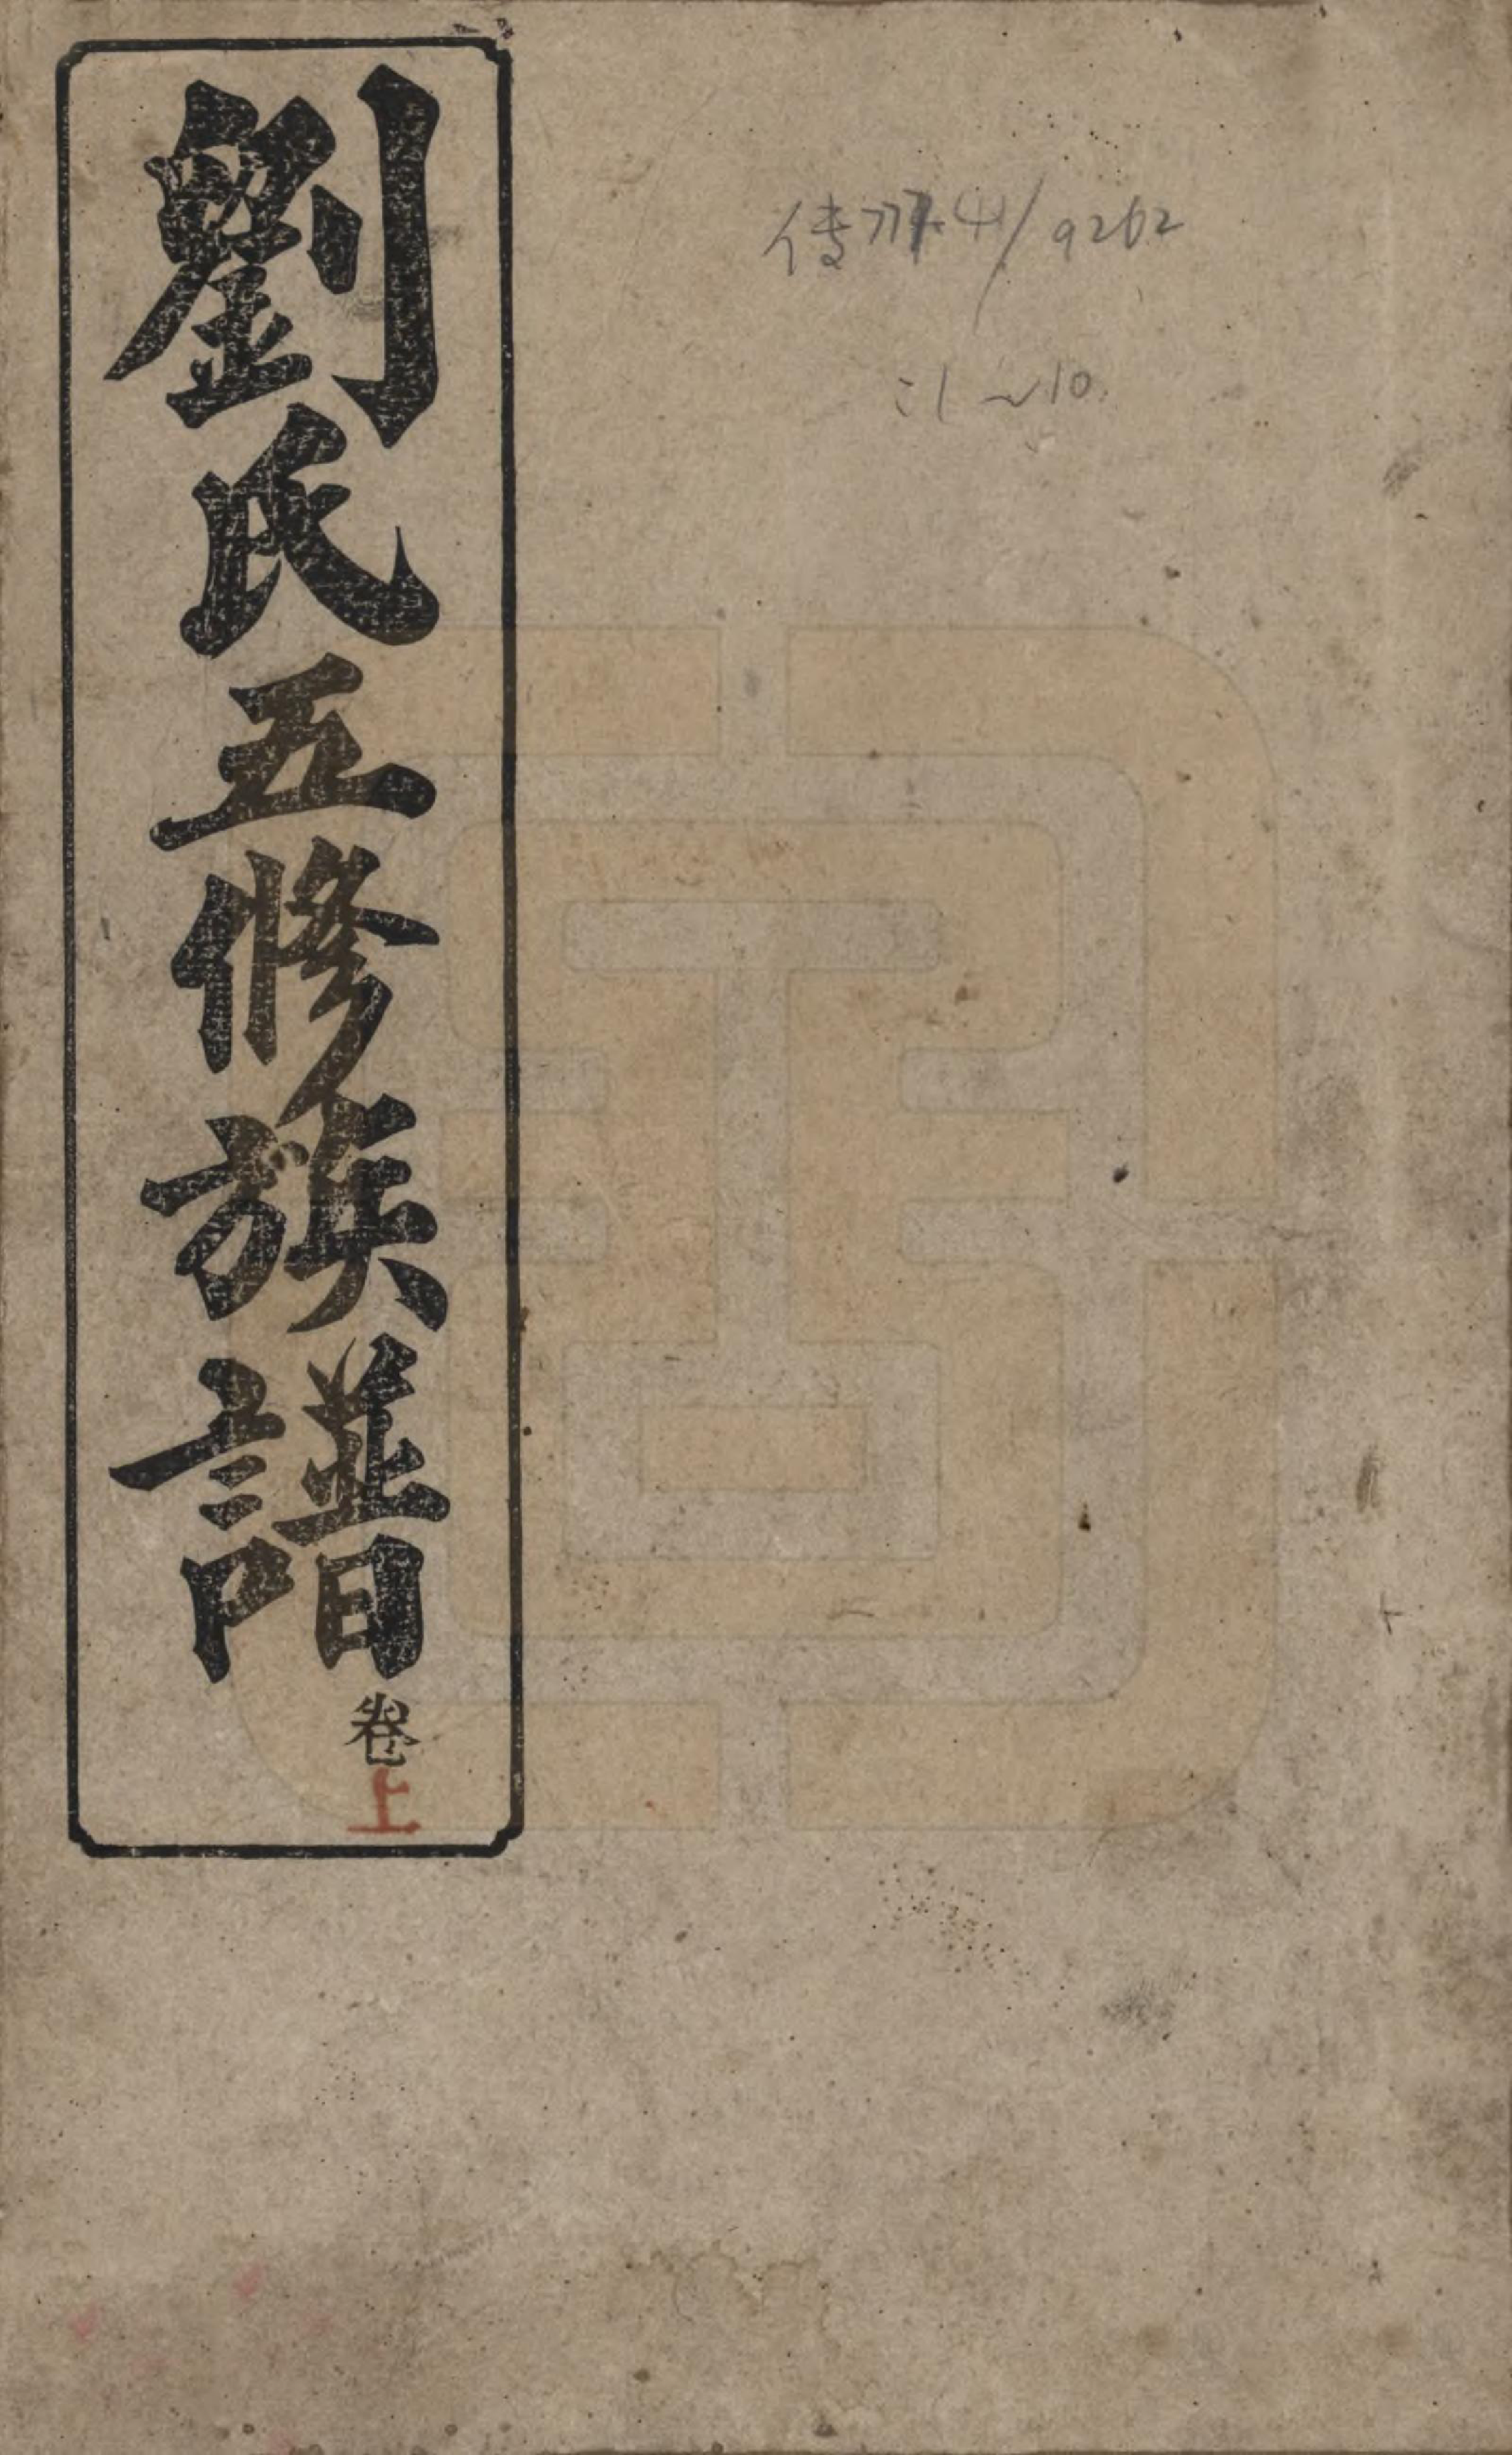 劉氏五修族譜卷上
傳777.41/9262
:1~10